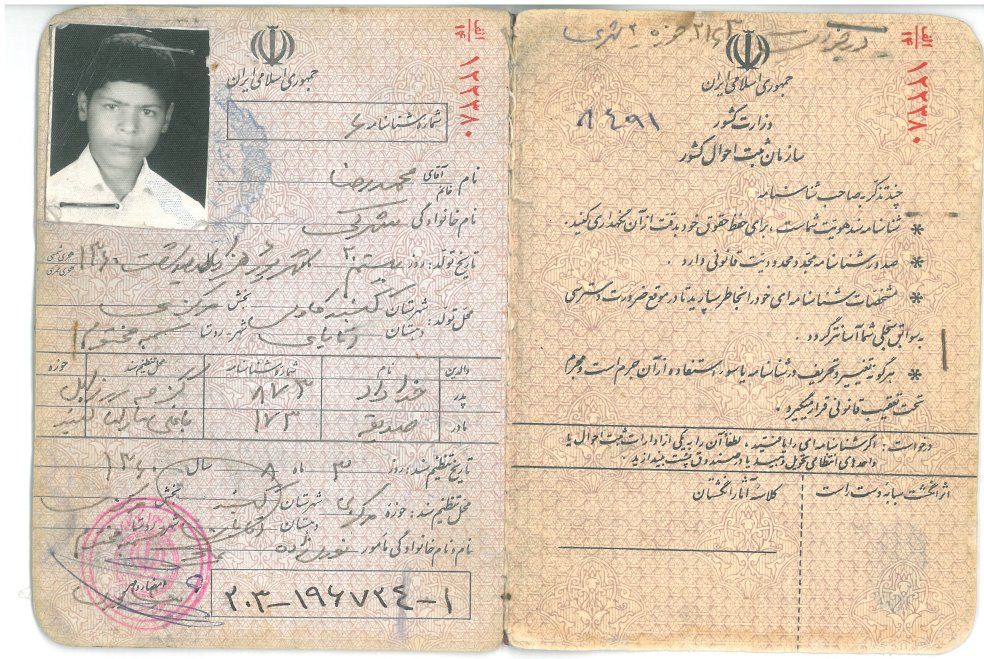 الف
۱۴
۱۲۲۳۸۰
جمهوری اسلامی ایران
وزارت کشور
۸۴۹۱
سازمان ثبت احوال کشور
چند تذکر به صاحب شناسنامه
* شناسنامه سند هویت شماست ، برای حفظ حقوق خود بدقت از آن نگهداری کنید .
* صدور شناسنامه مجدد محدودیت قانونی دارد .
* مشخصات شناسنامه ای خود را بخاطر بسپارید تا در موقع ضرورت دسترسی
به سوابق سجلی شما آسانتر گردد .
* هرگونه تغییر و تحریف در شناسنامه یا سوء استفاده از آن جرم است و مجرم
تحت تعقیب قانونی قرار میگیرد .
درخواست : اگر شناسنامه ای را یافتید ، لطفاً آن را به یکی از ادارات ثبت احوال یا
واحدهای انتظامی تحویل دهید یا در صندوق پست بیندازید .
اثر انگشت سبابه دست راست
کلاسه آثار انگشتان
الف
۱۴
۱۲۲۳۸۰
جمهوری اسلامی ایران
شماره شناسنامه ۶
نام آقای خانم محمدرضا
نام خانوادگی
تاریخ تولد : روز بیستم شهریور هزار سیصد شصت ۱۳۶۰ هجری شمسی هجری قمری
محل تولد : شهرستان گنبد کاوس بخش مرکزی
دهستان شهر - روستا
والدین نام شماره شناسنامه محل تنظیم سند حوزه
پدر خداداد ۸۷۳
مادر صدیقه ۱۷۳
تاریخ تنظیم سند : روز ۳ ماه ۸ سال ۱۳۶۰
محل تنظیم سند : حوزه شهرستان گنبد بخش مرکزی
دهستان شهر - روستا
نام و نام خانوادگی مأمور
امضاء و مهر
۲۰۳-۱۹۶۷۲۴-۱